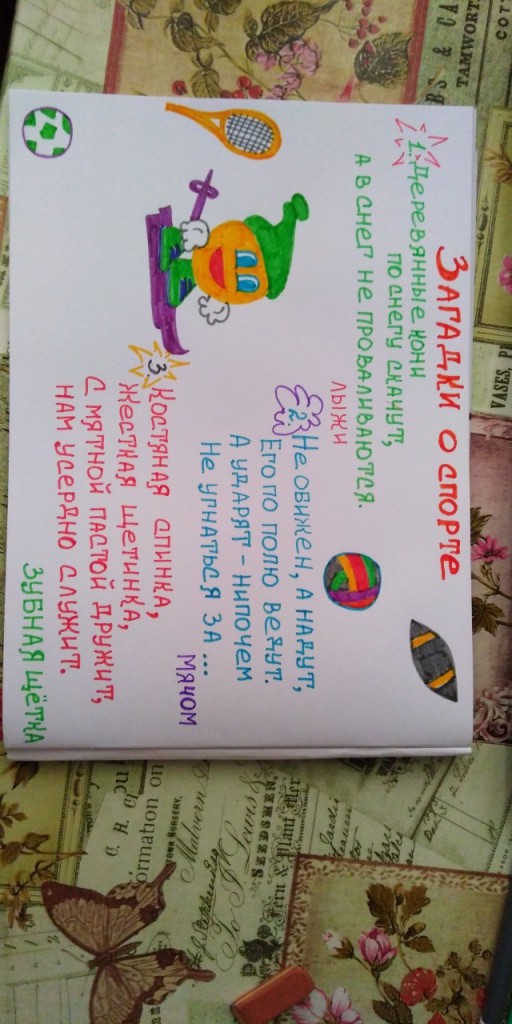 ЗАГАДКИ О СПОРТЕ
1. ДЕРЕВЯННЫЕ КОНИ
ПО СНЕГУ СКАЧУТ,
А В СНЕГ НЕ ПРОВАЛИВАЮТСЯ.
ЛЫЖИ
2. НЕ ОБИЖЕН, А НАДУТ,
ЕГО ПО ПОЛЮ ВЕДУТ.
А УДАРЯТ - НИПОЧЁМ
НЕ УГНАТЬСЯ ЗА ...
МЯЧОМ
3. КОСТЯНАЯ СПИНКА,
ЖЕСТКАЯ ЩЕТИНКА,
С МЯТНОЙ ПАСТОЙ ДРУЖИТ,
НАМ УСЕРДНО СЛУЖИТ.
ЗУБНАЯ ЩЁТКА
TAMWORTH
VASES
ormation on
Malvern